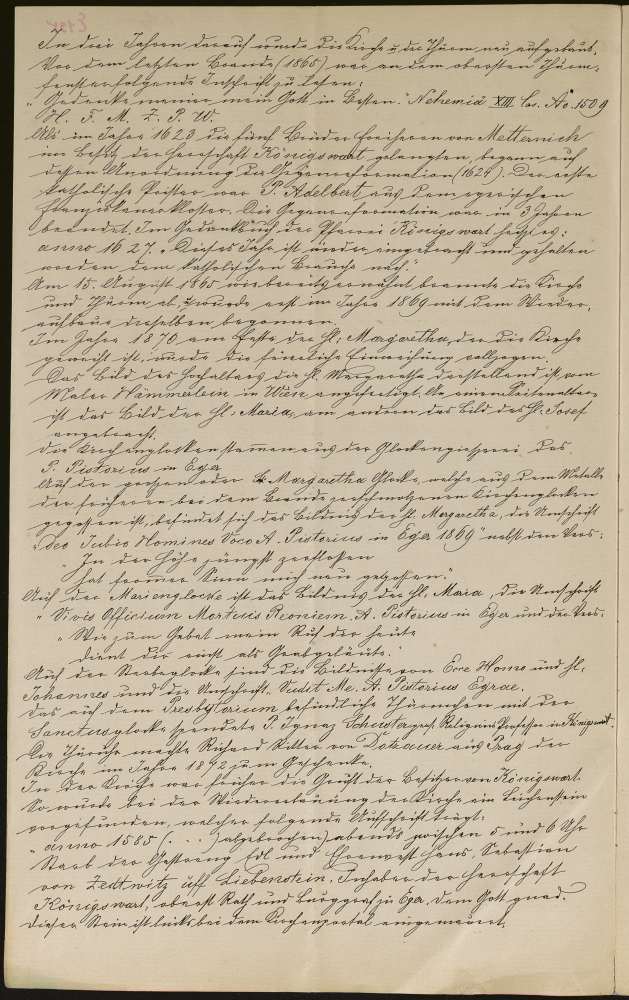 In drei Jahren darauf wurde die Kirche u. der Thurm neu aufgebaut.
Vor dem letzten Brande (1865) war an dem obersten Thurm-
fenster folgende Inschrift zu lesen:
"Gedenke meiner mein Gott im Besten." Nehemia XIII. Ao. 1509
H. F. M. Z. P. W.
Als im Jahre 1623 die fünf Brüder Freiherren von Metternich
in Besitz der Herrschaft Königswart gelangten, begann auf
dessen Anordnung die Gegenreformation (1624). Der erste
katholische Priester war P. Adelbert aus dem egerischen
Franziskanerkloster. Die Gegenreformation war in 3 Jahren
beendet. Im Gedenkbuch der Pfarrei Königswart heißt es:
anno 1627. "Dieses Jahr ist wieder eingebracht und gehalten
worden dem katholischen Brauche nach."
Am 15. August 1865 wie bereits erwähnt brannte die Kirche
und Thurm ab, wurde erst im Jahre 1869 mit dem Wieder-
aufbaue derselben begonnen.
Im Jahre 1870 am Feste der hl. Margaretha, der die Kirche
geweiht ist, wurde die feierliche Einweihung vollzogen.
Das Bild des Hochaltars die hl. Margaretha darstellend ist vom
Maler Hämmerlein in Wien angefertigt. An einem Seitenaltare
ist das Bild der hl. Maria, am andern das Bild des hl. Josef
angebracht.
Die Kirchenglocken stammen aus der Glockengießerei des
P. Pistorius in Eger
Auf der großen oder St. Margaretha Glocke, welche aus dem Metalle
der früheren bei dem Brande geschmolzenen Kirchenglocken
gegossen ist, befindet sich das Bildnis der hl. Margaretha, die Umschrift
"Deo Jubio Homines Voco A. Pistorius in Eger 1869" nebst dem Vers:
"In der Höhe jüngst zerflossen
hat frommer Sinn mich neu gegossen."
Auf der Marienglocke ist das Bildnis der hl. Maria, die Umschrift
"Vivis Officium Mortuis Requiem. A. Pistorius in Eger und der Vers:
"Wie zum Gebet mein Ruf der heute
dient dir einst als Grabgeläute."
Auf der Sterbeglocke sind die Bildnisse von Ecce Homo und hl.
Johannes und die Umschrift. Fudit Me. A. Pistorius Egrae.
Das auf dem Presbyterium befindliche Thürmchen mit der
Sanctusglocke spendete P. Ignaz Schuster Religions Professor in Königswart.
Die Thurmuhr machte Richard Ritter von Dotzauer aus Prag der
Kirche im Jahre 1872 zum Geschenke.
In der Kirche war früher die Gruft der Besitzer von Königswart.
So wurde bei der Wiedererbauung der Kirche ein Leichenstein
vorgefunden, welcher folgende Aufschrift trägt:
"anno 1585 (. . .) abgebrochen) abends zwischen 5 und 6 Uhr
Starb der Gestreng Edl und Ehrenvest Hans, Sebastian
von Zedtwitz uff Liebenstein. Inhaber der Herrschaft
Königswart, oberst Rath und Burggraf zu Eger, dem Gott gnad.
Dieser Stein ist links bei dem Kirchenportal eingemauert.